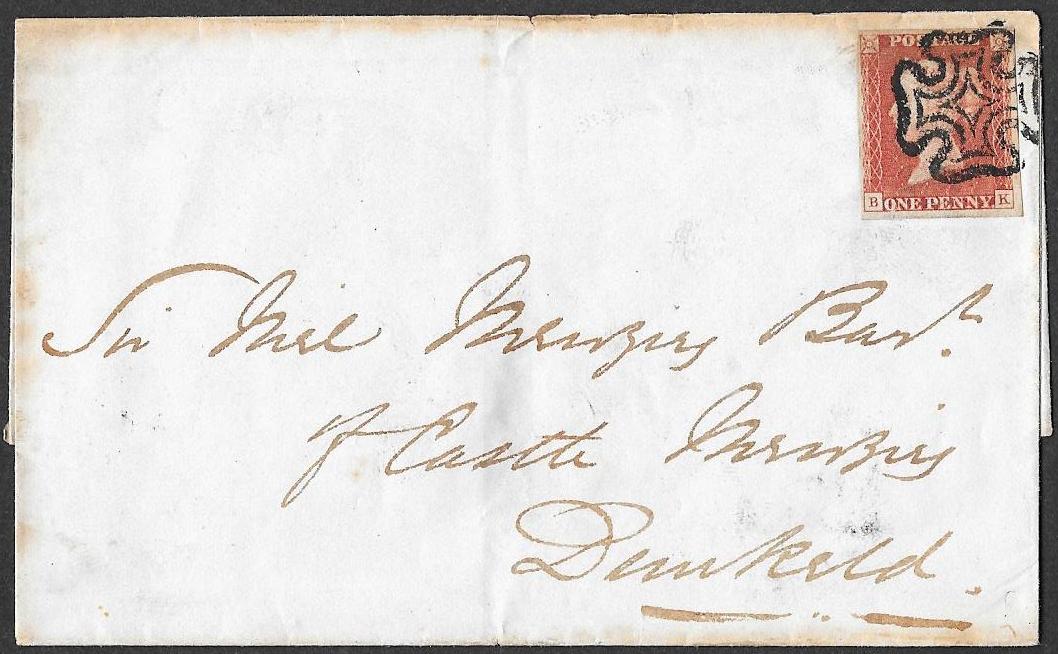 POSTAGE
B ONE PENNY K
Sir Niel Menzies Bart.
of Castle Menzies
Dunkeld.